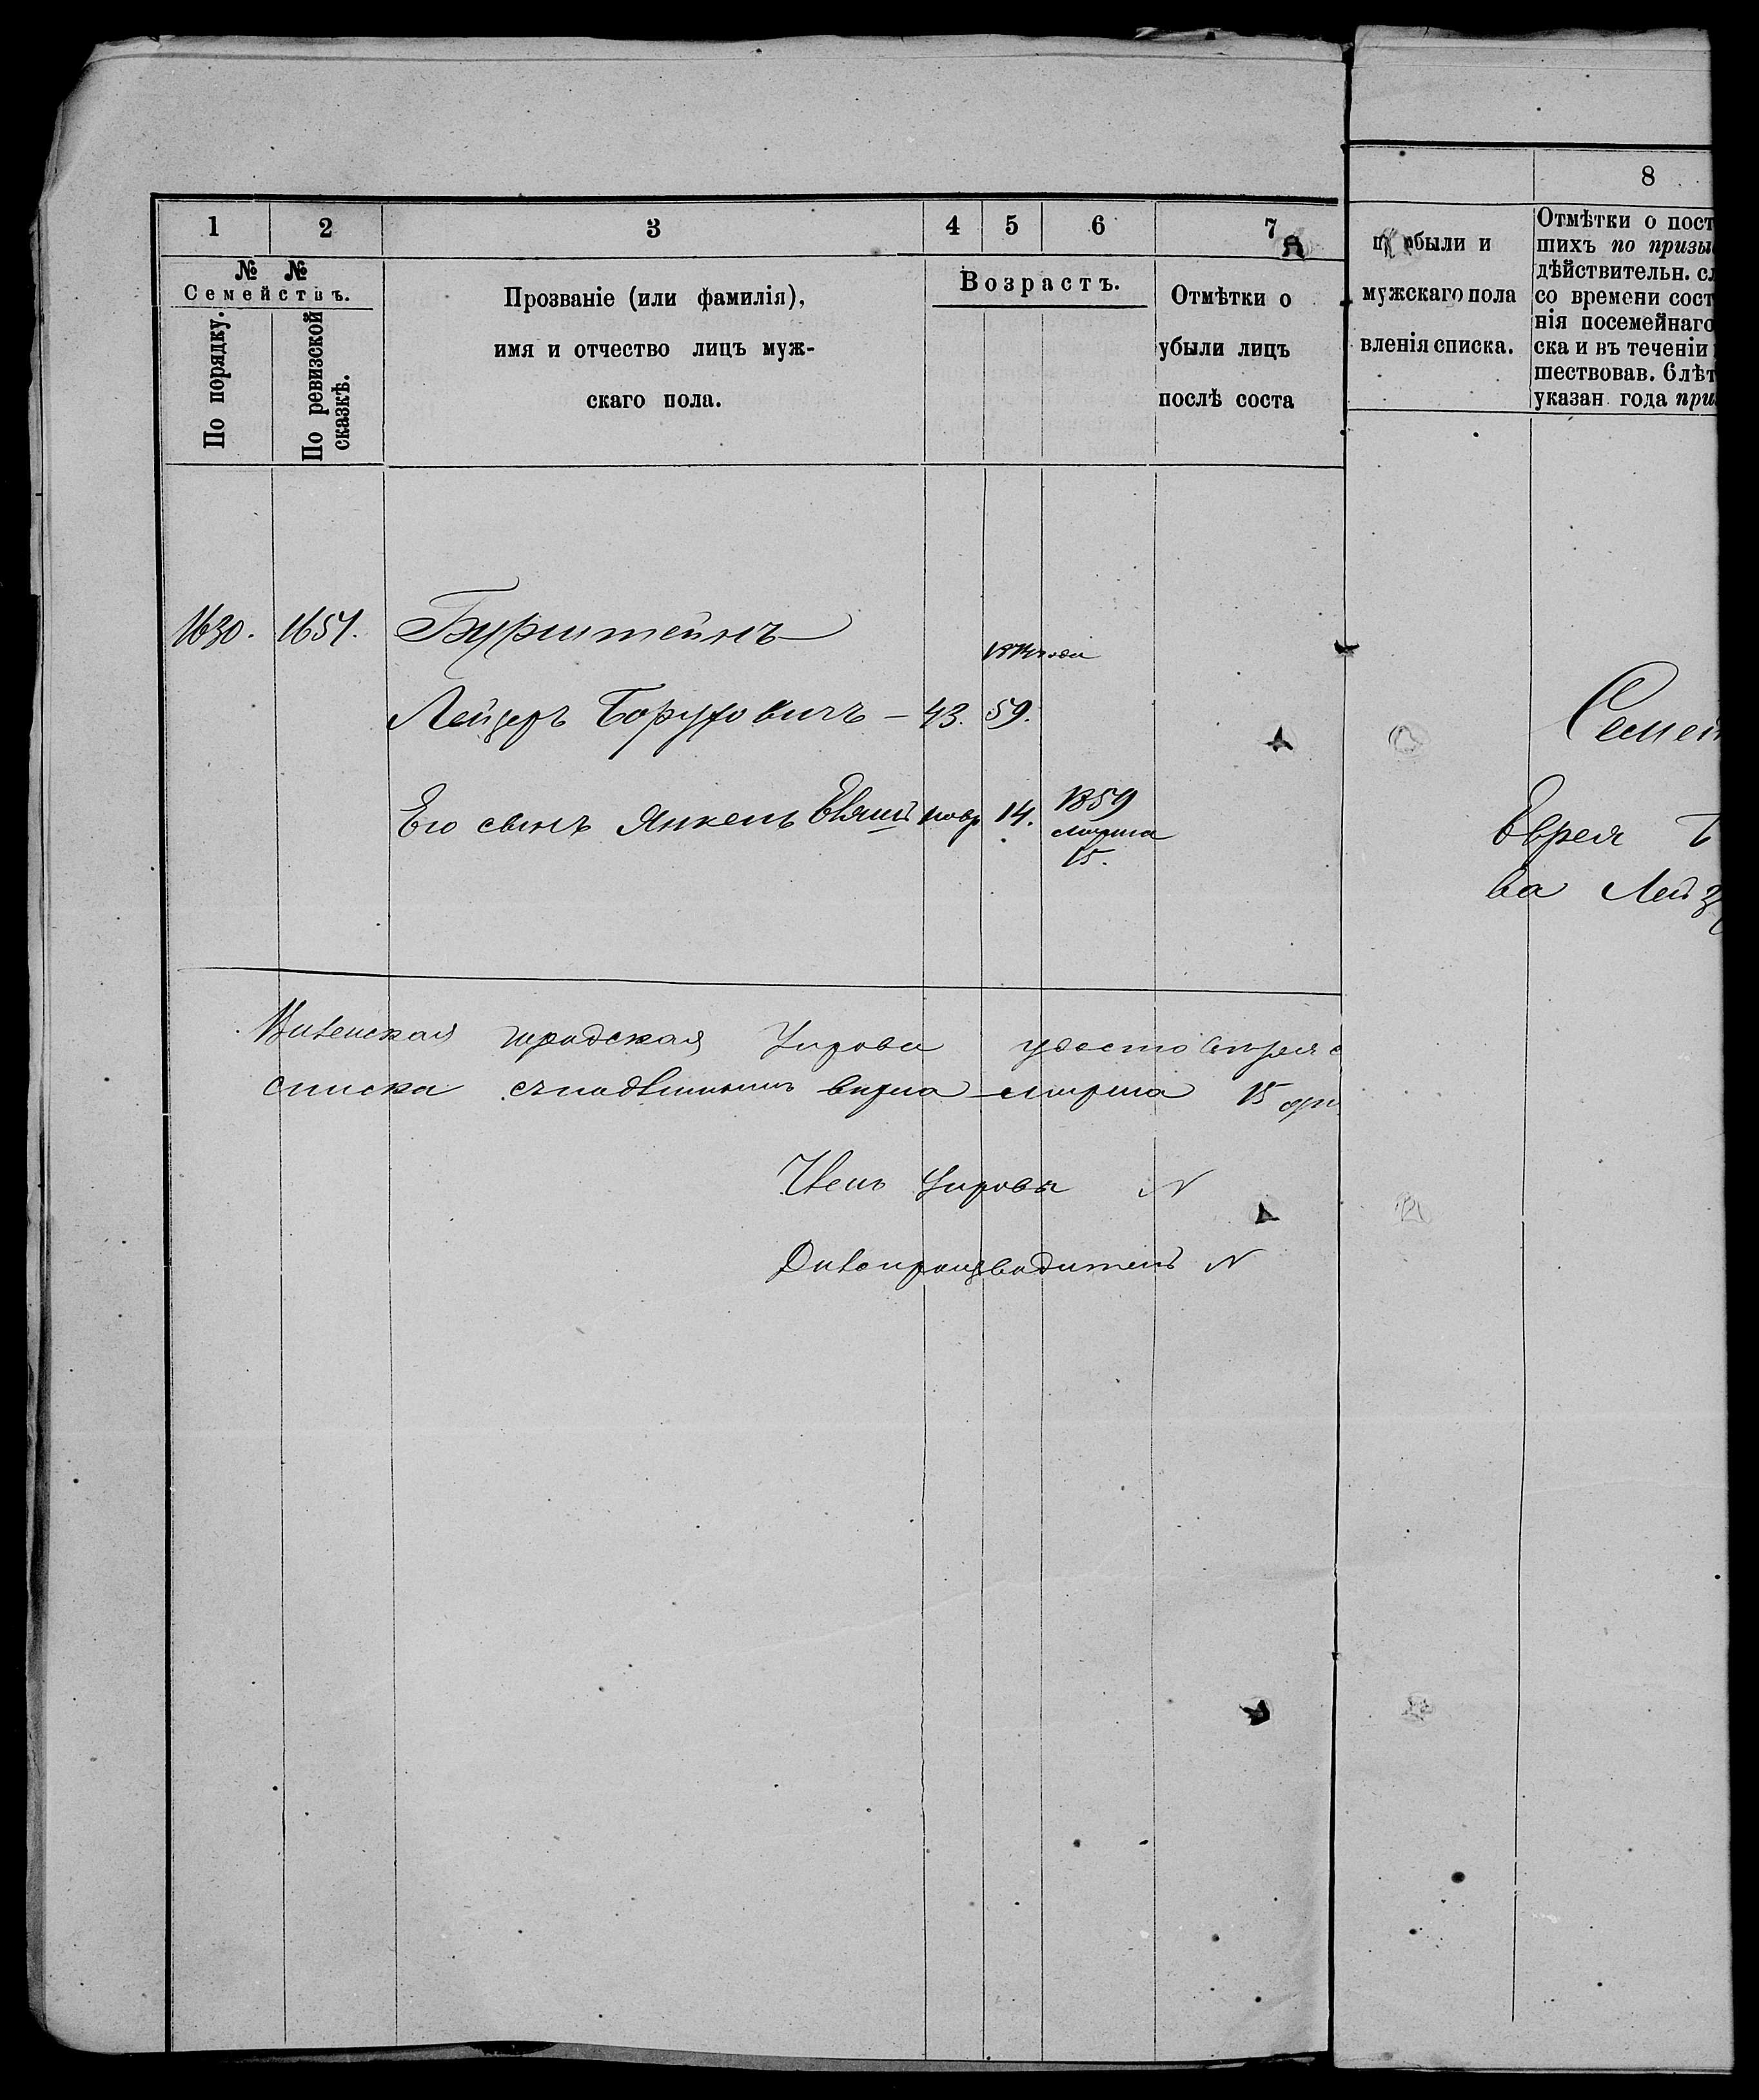 1 2 3 4 5 6 7
№ №
Семействъ.
По порядку.
По ревизской сказкѣ.
Прозваніе (или фамилія),
имя и отчество лицъ муж-
скаго пола.
Возрастъ.
Отмѣтки о
убыли лицъ
послѣ соста
8
были и
мужскаго пола
вленія списка.
Отмѣтки о пост
шихъ по призы
дѣйствительн. сл
со времени сост
нія посемейнаго
ска и въ теченіи
шествовав. 6 лѣт
указан. года при
1630. 1651. Бурштейнъ
1874 года
Лейзеръ Боруховичъ – 43. 59.
Его сынъ Янкель новр 14. 1859
марта
15.
городская Управа удостовѣряя
списка съ подлиннымъ вѣрна марта 15 дня
Членъ Управы N
Дѣлопроизводитель N
Семей
Еврея
ва Лейз